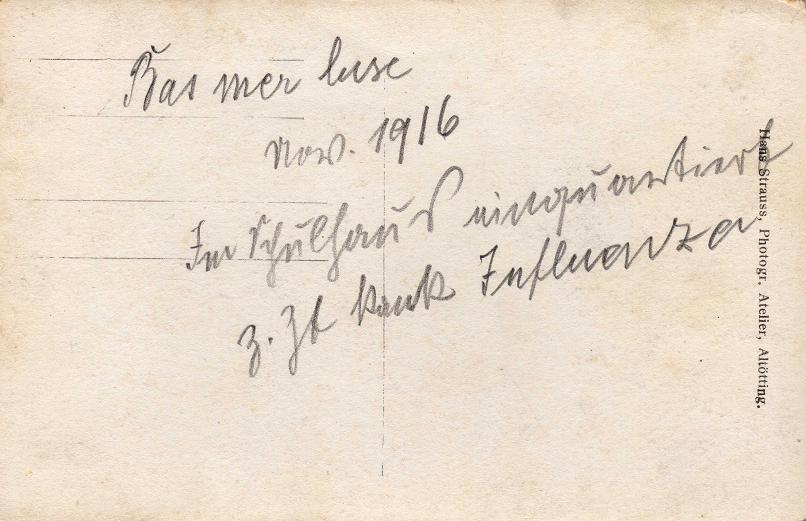 Nov. 1916
Im Schulhaus einquartiert
z. Zt krank Influenza
Hans Strauss, Photogr. Atelier, Altötting.